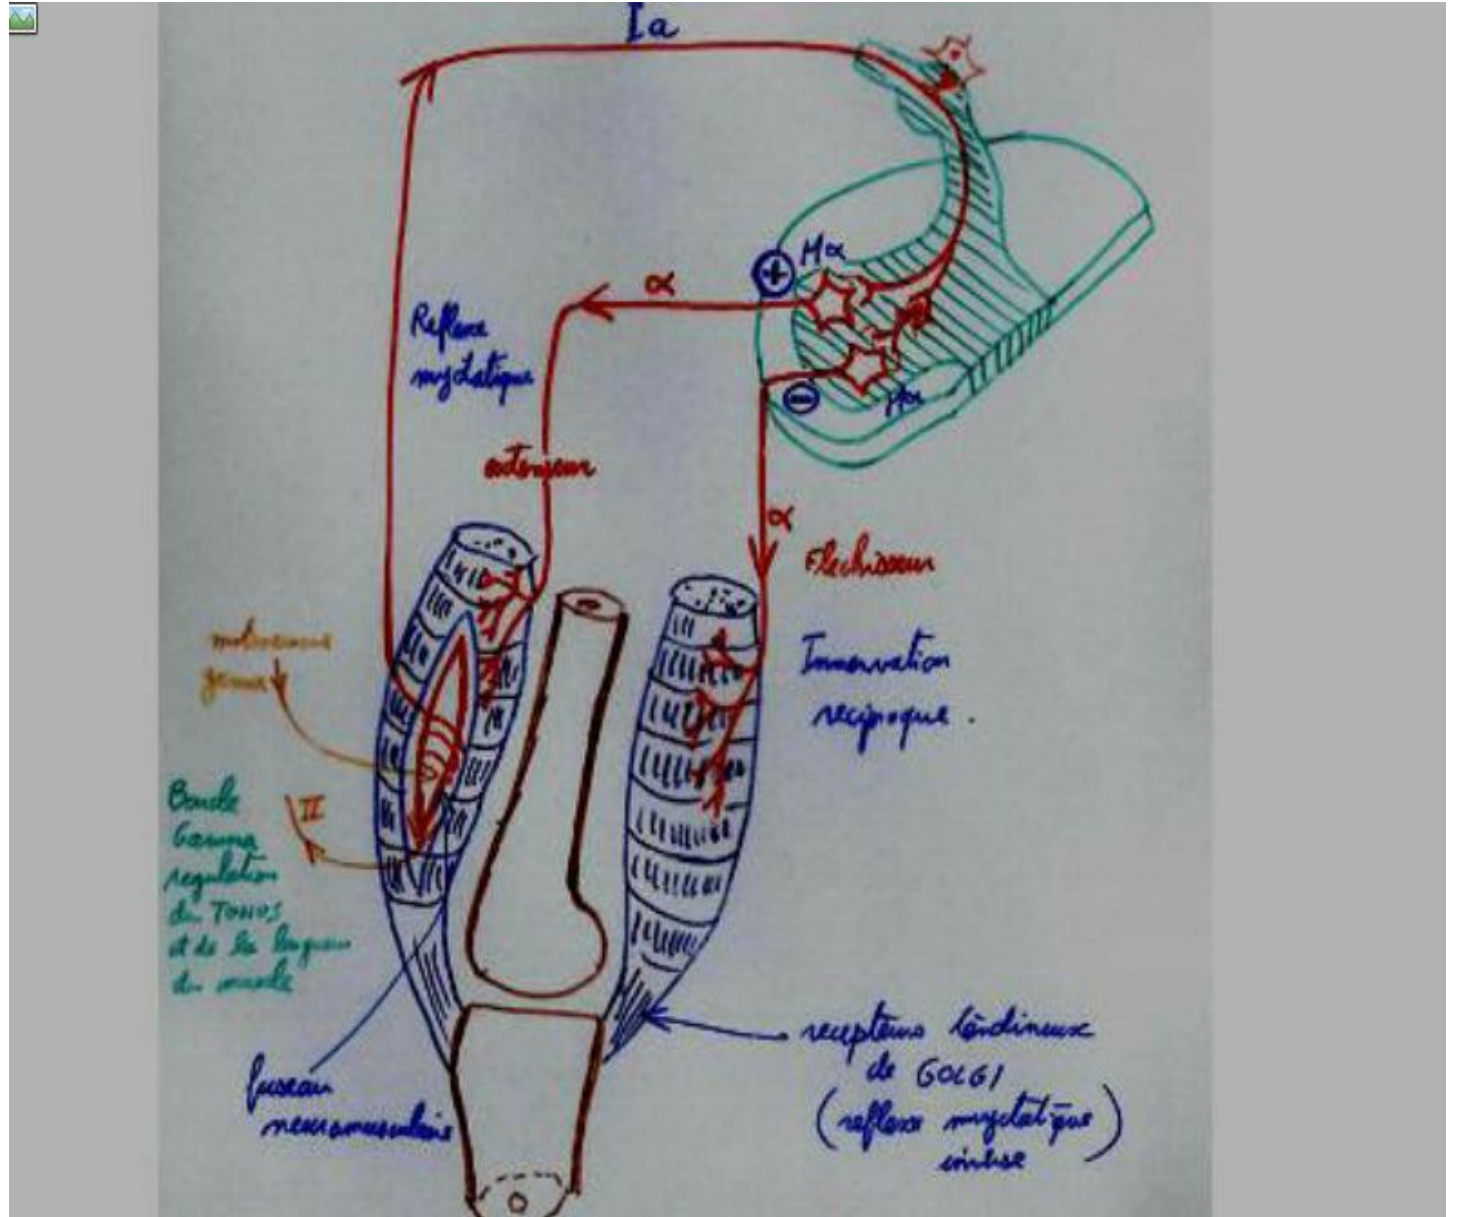 Ia
Mα
+
α
Reflexe
myotatique
-
Mα
extenseur
α
Flechisseur
motoneurone
gamma
Innervation
reciproque.
II
Boucle
Gamma
regulation
du TONUS
et de la longueur
du muscle
fuseau
neuromusculaire
recepteurs tendineux
de GOLGI
(reflexe myotatique
inverse)